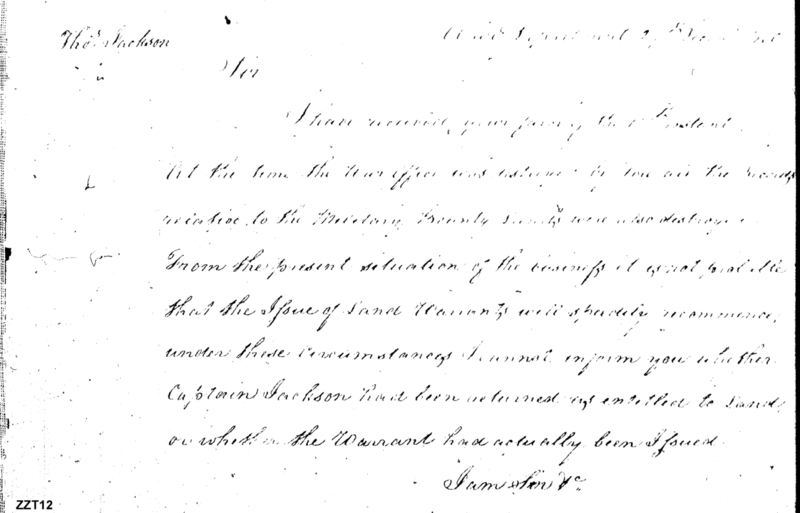 Tho.s Jackson
Sir
I have received your favor of the instant
At the time the War office was by fire all the records
relative to the Military Bounty Lands were also destroye
From the present situation of the business it is not probable
that the Issue of Land Warrants will speedily recommence,
under these circumstances I cannot inform you whether
Captain Jackson had been returned as entitled to Land
or whether the Warrant had actually been Issued
I am Sir &c
ZZT12